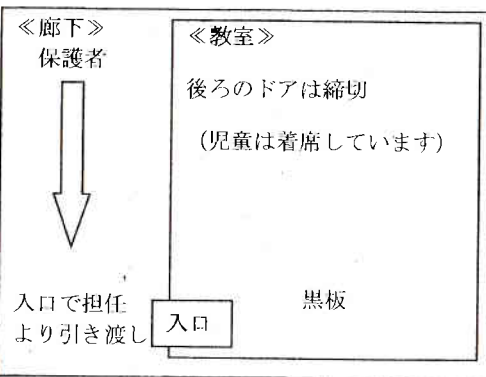 ≪廊下≫
保護者
入口で担任
より引き渡し
≪教室≫
後ろのドアは締切
(児童は着席しています)
黒板
入口